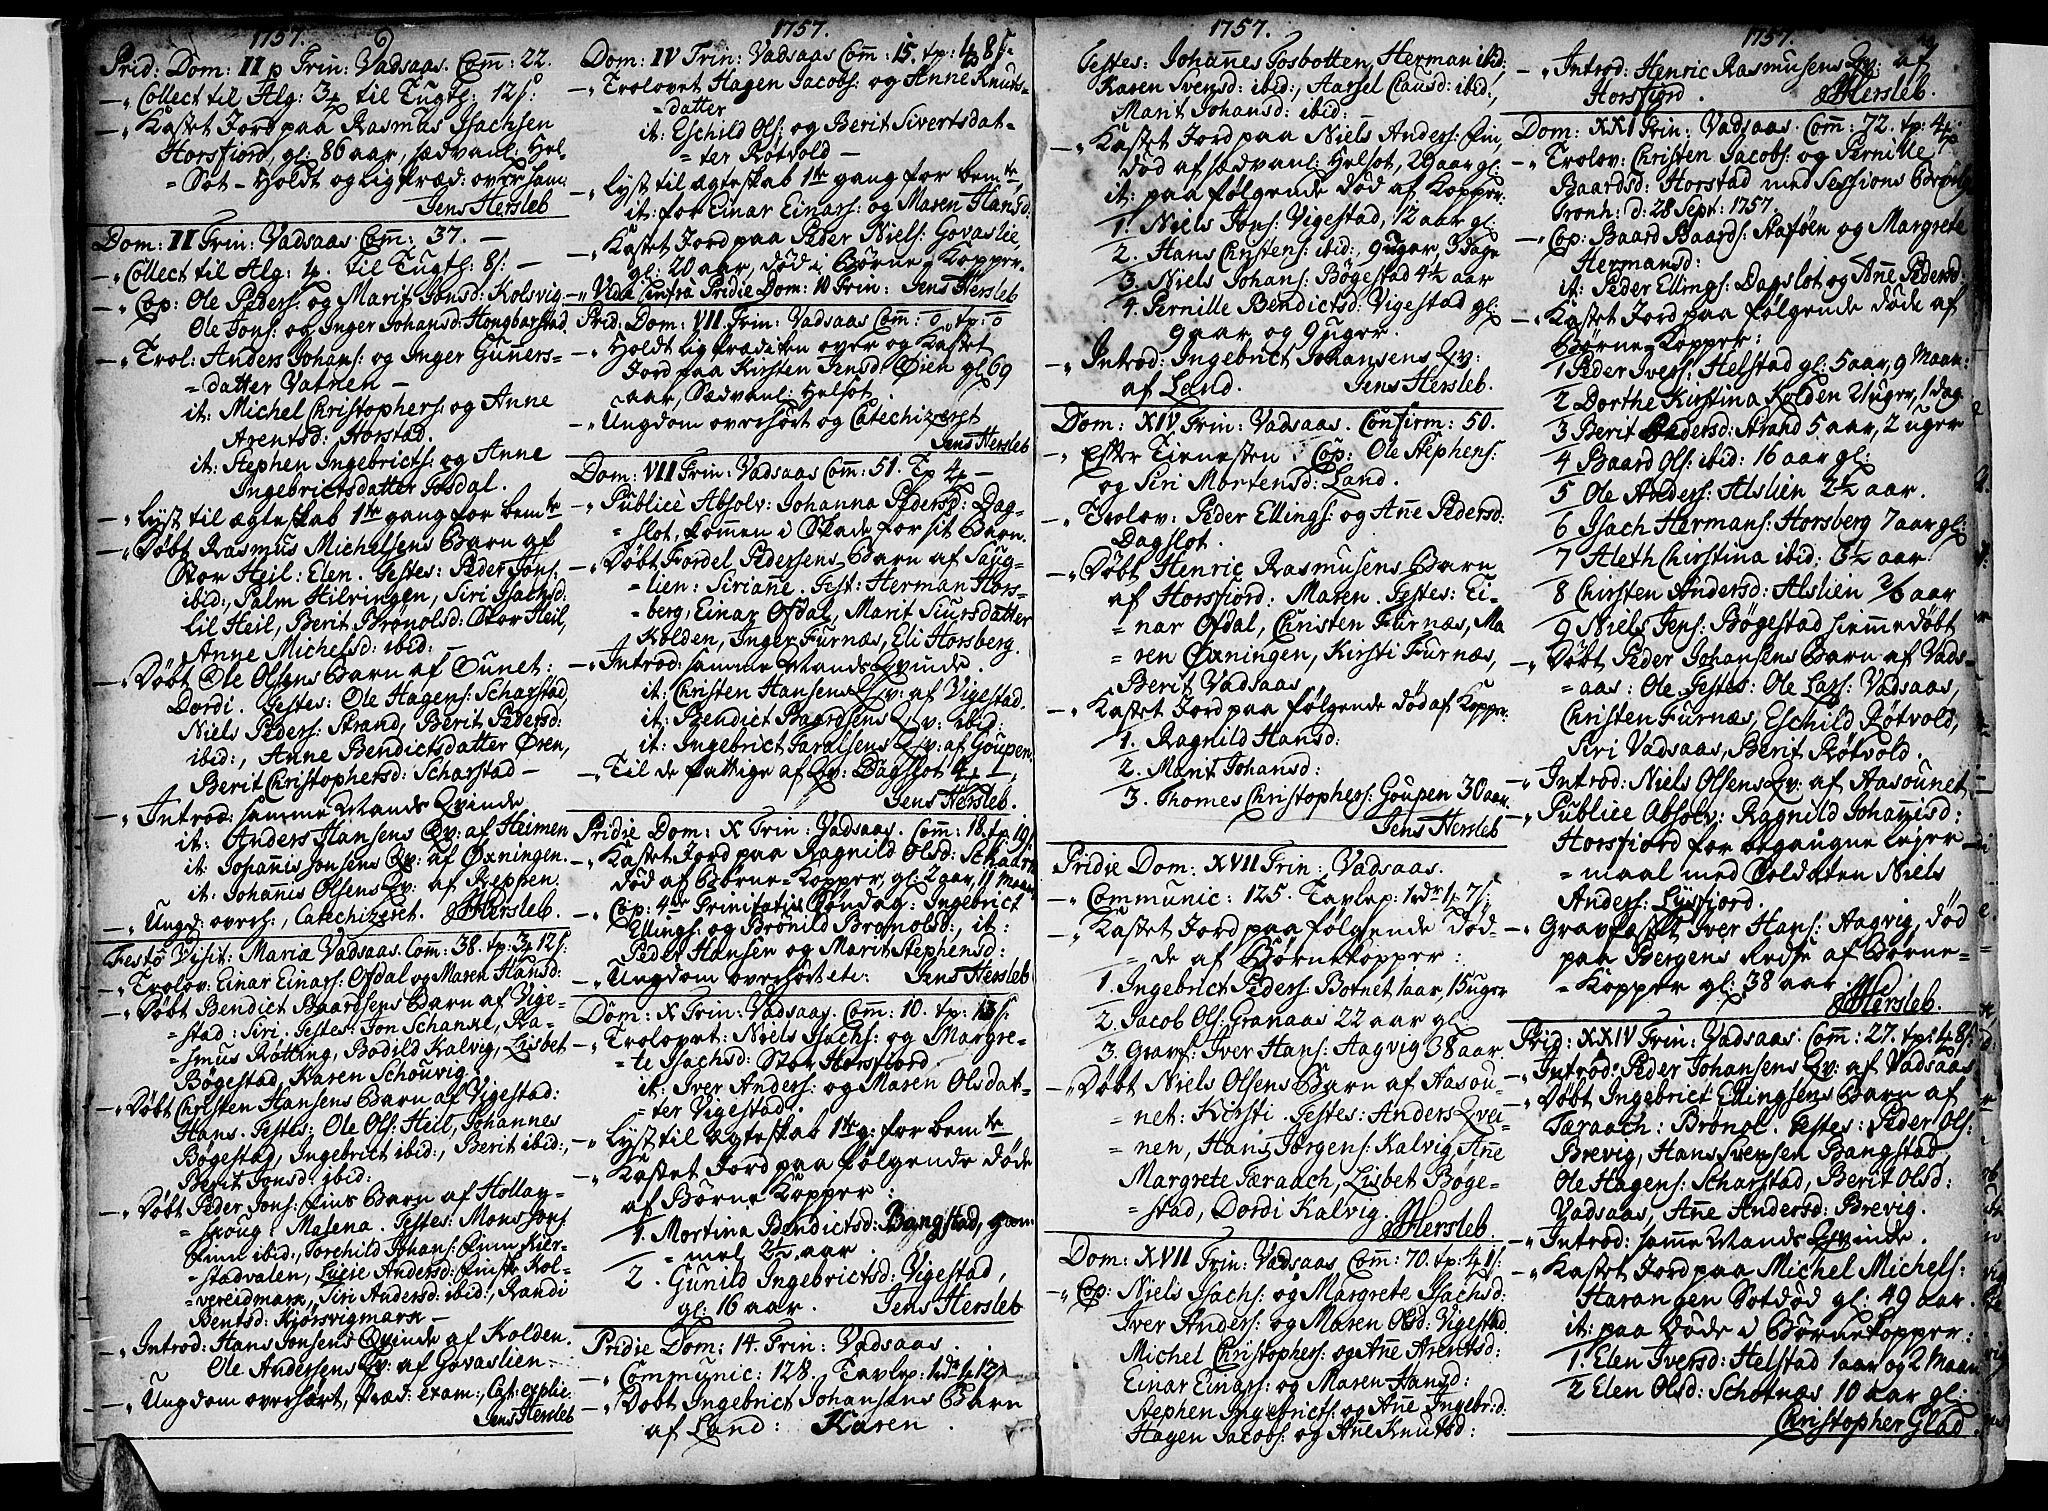 1757.
Prid: Dom: II p Trin: Vadsaas. Com̄: 22.
Collect til Alg: 3 til Tugth: 12 s:
Kastet Jord paa Rasmus Isachsen
Horsfiord, gl: 86 aar, sædvanl: Hel-
= Sot - Holdt og ligpræd: over ham
Jens Hersleb
Dom: II Trin: Vadsaas. Com̄: 37. —
Collect til Alg: 4. til Tugth: 8 s: —
Cop: Ole Peders: og Marit Jonsd: Kolsvig
Ole Jons: og Inger Johansd: Hongbarstad
Trol: Anders Johans: og Inger Guners-
= datter Vatnen —
it: Michel Christophers: og Anne
Arentsd: Horstad.
it: Stephen Ingebricts: og Anne
Ingebrictsdatter Tosdal.
Lyst til ægteskab 1te gang for bemte
Døbt Rasmus Michelsens Barn af
Stor Heil: Elen. Testes: Peder Jons:
ibid:, Palm Hilringen, Siri Isachsd:
Lil Heil, Berit Brønolsd: Stor Heil,
Anne Michelsd: ibid: —
Døbt Ole Olsens Barn af Ounet:
Dordi. Testes: Ole Hagens: Scharstad,
Niels Peders: Strand, Berit Pedersd:
ibid:, Anne Bendictsdatter Øren,
Berit Christophersd: Scharstad —
Introd: samme Mands Qvinde
it: Anders Hansens Qv: af Heimen
it: Johannis Jonsens Qv: af Øxningen.
it: Johannis Olsens Qv: af Reppen.
Ungd: overh:, Catechizeret. JHersleb.
Festo Visit: Mariæ Vadsaas. Com̄: 38. tp: 3 12 s:
Trolov: Einar Einars: Ofdal og Maren Hansd:
Døbt Bendict Baardsens Barn af Vige-
= stad: Siri. Testes: Jon Schanke, Ra-
= smus Røtting, Bodild Kalvig, Lisbet
Bøgestad, Karen Schouvig
Døbt Christen Hansens Barn af Vigestad:
Hans. Testes: Ole Ols: Heil, Johannes
Bøgestad, Ingebrict ibid:, Berit ibid:,
Berit Jonsd: ibid:
Døbt Peder Jons: Fins Barn af Hollay-
= schoug: Malena. Testes: Mons Jons:
Finn ibid:, Torchild Johans: Finn Kier-
= stadvalen, Lucie Andersd: Finske Kol-
= vereidmark, Siri Andersd: ibid:, Randi
Bentsd: Kjørsvigmark —
Introd: Hans Jonsens Qvinde af Kolden.
Ole Andersens Qv: af Govaslien —
Ungdom overhørt, præd: exam:, Cat: explic:
Jens Hersleb
1757.
Dom: IV Trin: Vadsaas Com̄: 15. tp: 4 8 s:
Trolovet Hagen Jacobs: og Anne Knuts-
= datter
it: Eschild Ols: og Berit Sivertsdat-
= ter Røtvold —
Lyst til ægteskab 1te gang for bemte
it: for Einar Einars: og Maren Hansd:
Kastet Jord paa Peder Niels: Govaslie,
gl: 20 aar, død i Børne-Kopper.
Vide infra Pridie Dom: IV Trin: Jens Hersleb
Prid: Dom: VII Trin: Vadsaas Com̄: 0, tp: 0
Holdt ligprædiken over og Kastet
Jord paa Kirsten Jensd: Øien gl 69
aar, Sædvanl: Helsot
Ungdom overhørt og Catechizeret
Jens Hersleb
Dom: VII Trin: Vadsaas Com̄: 51. Tp 4 —
Publice Absolv: Johanna Pedersd: Dag-
= slot, kommen i Skade for sit Barn.
Døbt Fordel Pedersens Barn af Saug-
= lien: Siriane. Test: Herman Hors-
= berg, Einar Ofdal, Marit Siursdatter
Kolden, Inger Furnæs, Eli Horsberg.
Introd: samme Mands Qvinde.
it: Christen Hansens Qv: af Vigestad.
it: Bendict Baardsens Qv: ibid:
it: Ingebrict Taralsens Qv: af Goupen
Til de fattige af Qv: Dagslot
Jens Hersleb.
Pridie Dom: X Trin: Vadsaas. Com̄: 18. tp. 19 s:
Kastet Jord paa Ragnild Olsd: Schaarn
død af Børne-Kopper, gl: 2 aar, 11 Maan
Cop: 4de Trinitatis Søndag: Ingebrict
Ellings: og Brønild Brønolsd:, it:
Peder Hansen og Marit Stephensd:
Ungdom overhørt etc: Jens Hersleb
Dom: X Trin: Vadsaas. Com̄: 10. tp: 13 s:
Trolovet: Niels Isachs: og Margre-
= te Isachsd: Stor Horsfiord
it: Iver Anders: og Maren Olsdat-
= ter Vigestad.
Lyst til ægteskab 1te g: for bemte
Kastet Jord paa følgende døde
af Børne Kopper:
1. Mortina Bendictsd: Bangstad, gam-
= mel 2½ aar
2. Gunild Ingebrictsd: Vigestad,
gl: 16 aar. Jens Hersleb
Pridie Dom: 14. Trin: Vadsaas.
Communic: 128. Tavlep: 1 dr 4 12 s
Døbt Ingebrict Johansens Barn
af Land: Karen.
1757.
Testes: Johannes Fosbotten, Herman ibid:
Karen Svensd: ibid:, Aarsel Clausd: ibid:,
Marit Johansd: ibid: —
Kastet Jord paa Niels Anders: Fin,
død af sædvanl: Helsot, 29 aar gl:
it: paa følgende død af Kopper
1. Niels Jons: Vigestad, 12 aar gl
2. Hans Christens: ibid:, 9 uger, 3 dage
3. Niels Johans: Bøgestad 4½ aar
4. Pernille Bendictsd: Vigestad gl:
9 aar og 9 uger.
Introd: Ingebrict Johansens Qv:
af Land. Jens Hersleb.
Dom: XIV Trin: Vadsaas. Confirm: 50.
Efter Tienesten Cop: Ole Stephens:
og Siri Mortensd: Land.
Trolov: Peder Ellings: og Añe Pedersd:
Dagslot.
Døbt Henric Rasmusens Barn
af Horsfiord: Maren. Testes: Ei-
= nar Ofdal, Christen Furnæs, Ma
= ren Øxningen, Kirsti Furnæs,
Berit Vadsaas
Kastet Jord paa følgende død af Kopper
1. Ragnild Hansd:
2. Marit Johansd:
3. Thomes Christophers: Goupen 30 aar.
Jens Hersleb
Pridie Dom: XVII Trin: Vadsaas.
Communic: 125. Tavlep: 1 dr 1 7 s:
Kastet Jord paa følgende Død-
= de af Børnekopper:
1. Ingebrict Peders: Botnet 1 aar, 15 uger
2. Jacob Ols: Granaas 22 aar gl
3. Gravf: Iver Hans: Aagvig 38 aar.
Døbt Niels Olsens Barn af Aasou-
= net: Kirsti. Testes: Anders Qvei-
= nen, Hans Jørgens: Kalvig, Añe
Margrete Tæraach, Lisbet Bøge-
= stad, Dordi Kalvig.
JHersleb.
Dom: XVII Trin: Vadsaas Com̄: 70. tp: 4 1 s:
Cop: Niels Isachs: og Margrete Isachsd:
Iver Anders: og Maren Olsd: Vigestad
Michel Christophers: og Añe Arentsd:
Einar Einars: og Maren Hansd:
Stephen Ingebricts: og Añe Ingebr:d:
Hagen Jacobs: og Añe Knutsd:
1757.
Introd: Henric Rasmusens Qv: af
Horsfiord. JHersleb.
Dom: XXI Trin: Vadsaas. Com̄: 72. tp: 4
Trolov: Christen Jacobs: og Pernille
Baardsd: Horstad med Sessions
Tronh: d: 28 Sept: 1757.
Cop: Baard Baards: Aaføen og Margrete
Hermansd:
it: Peder Ellings: Dagslot og Añe Pedersd:
Kastet Jord paa følgende døde af
Børne-Kopper:
1 Peder Ivers: Helstad gl: 5 aar, 9 Maan:
2 Dorthe Kirstina Kolden 21 uger, 1 dag
3 Berit Pedersd: Strand 5 aar, 2 uger
4 Baard Ols: ibid: 16 aar gl:
5 Ole Anders: Alslien 2½ aar.
6 Isach Hermans: Horsberg 7 aar gl:
7 Aleth Chirstina ibid: 5½ aar.
8 Chirsten Andersd: Alslien aar
9 Niels Jens: Bøgestad hiemme døbt
Døbt Peder Johansens Barn af Vads-
= aas: Ole. Testes: Ole Lars: Vadsaas,
Christen Furnæs, Eschild Røtvold,
Siri Vadsaas, Berit Røtvold.
Introd: Niels Olsens Qv: af Aasounet
Publice Absolv: Ragnild Johañisd:
Horsfiord for begangne lejer-
= maal med Soldaten Niels
Anders: Lysfjord.
Gravfæstet Iver Hans: Aagvig, død
paa Bergens Redse af Børne-
= Kopper gl: 38 aar.
JHersleb.
Prid: XXIV Trin: Vadsaas. Com̄: 27. tp: 4 8 s:
Introd: Peder Johansens Qv: af Vadsaas
Døbt Ingebrict Ellingsens Barn af
Tæraach: Brønol. Testes: Peder Ols:
Brevig, Hans Svensen Bangstad,
Ole Hagens: Scharstad, Berit Olsd:
Vadsaas, Añe Andersd: Brevig.
Introd: sam̄e Mands Qvinde.
Kastet Jord paa Michel Michels:
Harangen Sotdød gl: 49 aar.
it: paa døde i Børnekopper:
1. Elen Iversd: Helstad 1 aar og 2 Maan
2 Elen Olsd: Schotnæs 10 aar gl:
Christopher Glad.